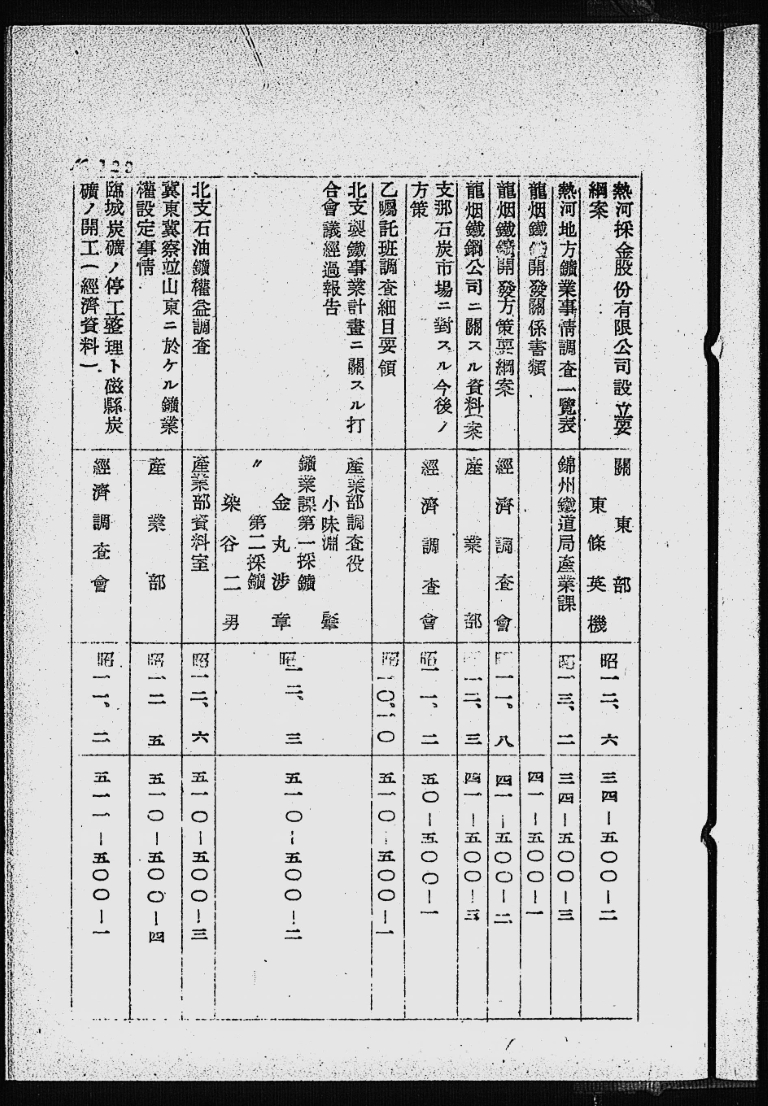 熱河採金股份有限公司設立要
綱案
關東部
東條英機
昭一二、六
三四―五〇〇―二
熱河地方鑛業事情調査一覽表
錦州鐵道局產業課
昭一三、二
三四―五〇〇―三
龍烟鐵鑛開發關係書類
四一―五〇〇―一
龍烟鐵鑛開發方策要綱案
經濟調査會
昭一一、八
四一―五〇〇―二
龍烟鐵鑛公司ニ關スル資料(案
產業部
一二、三
四一―五〇〇―三
支那石炭市場ニ對スル今後ノ
方策
經濟調査會
昭一一、二
五〇―五〇〇―一
乙囑託班調査細目要領
昭一〇、一〇
五一〇―五〇〇―一
北支製鐵事業計畫ニ關スル打
合會議經過報告
產業部調査役
小味淵肇
鑛業課第一採鑛
金丸涉章
〃第二採鑛
染谷二男
昭一二、三
五一〇―五〇〇―二
北支石油鑛權益調査
產業部資料室
昭一二、六
五一〇―五〇〇―三
冀東冀察竝山東ニ於ケル鑛業
權設定事情
產業部
昭一二 五
五一〇―五〇〇―四
臨城炭礦ノ停工整理ト磁縣炭
礦ノ開工(經濟資料)
經濟調査會
昭一一、二
五一一―五〇〇―一